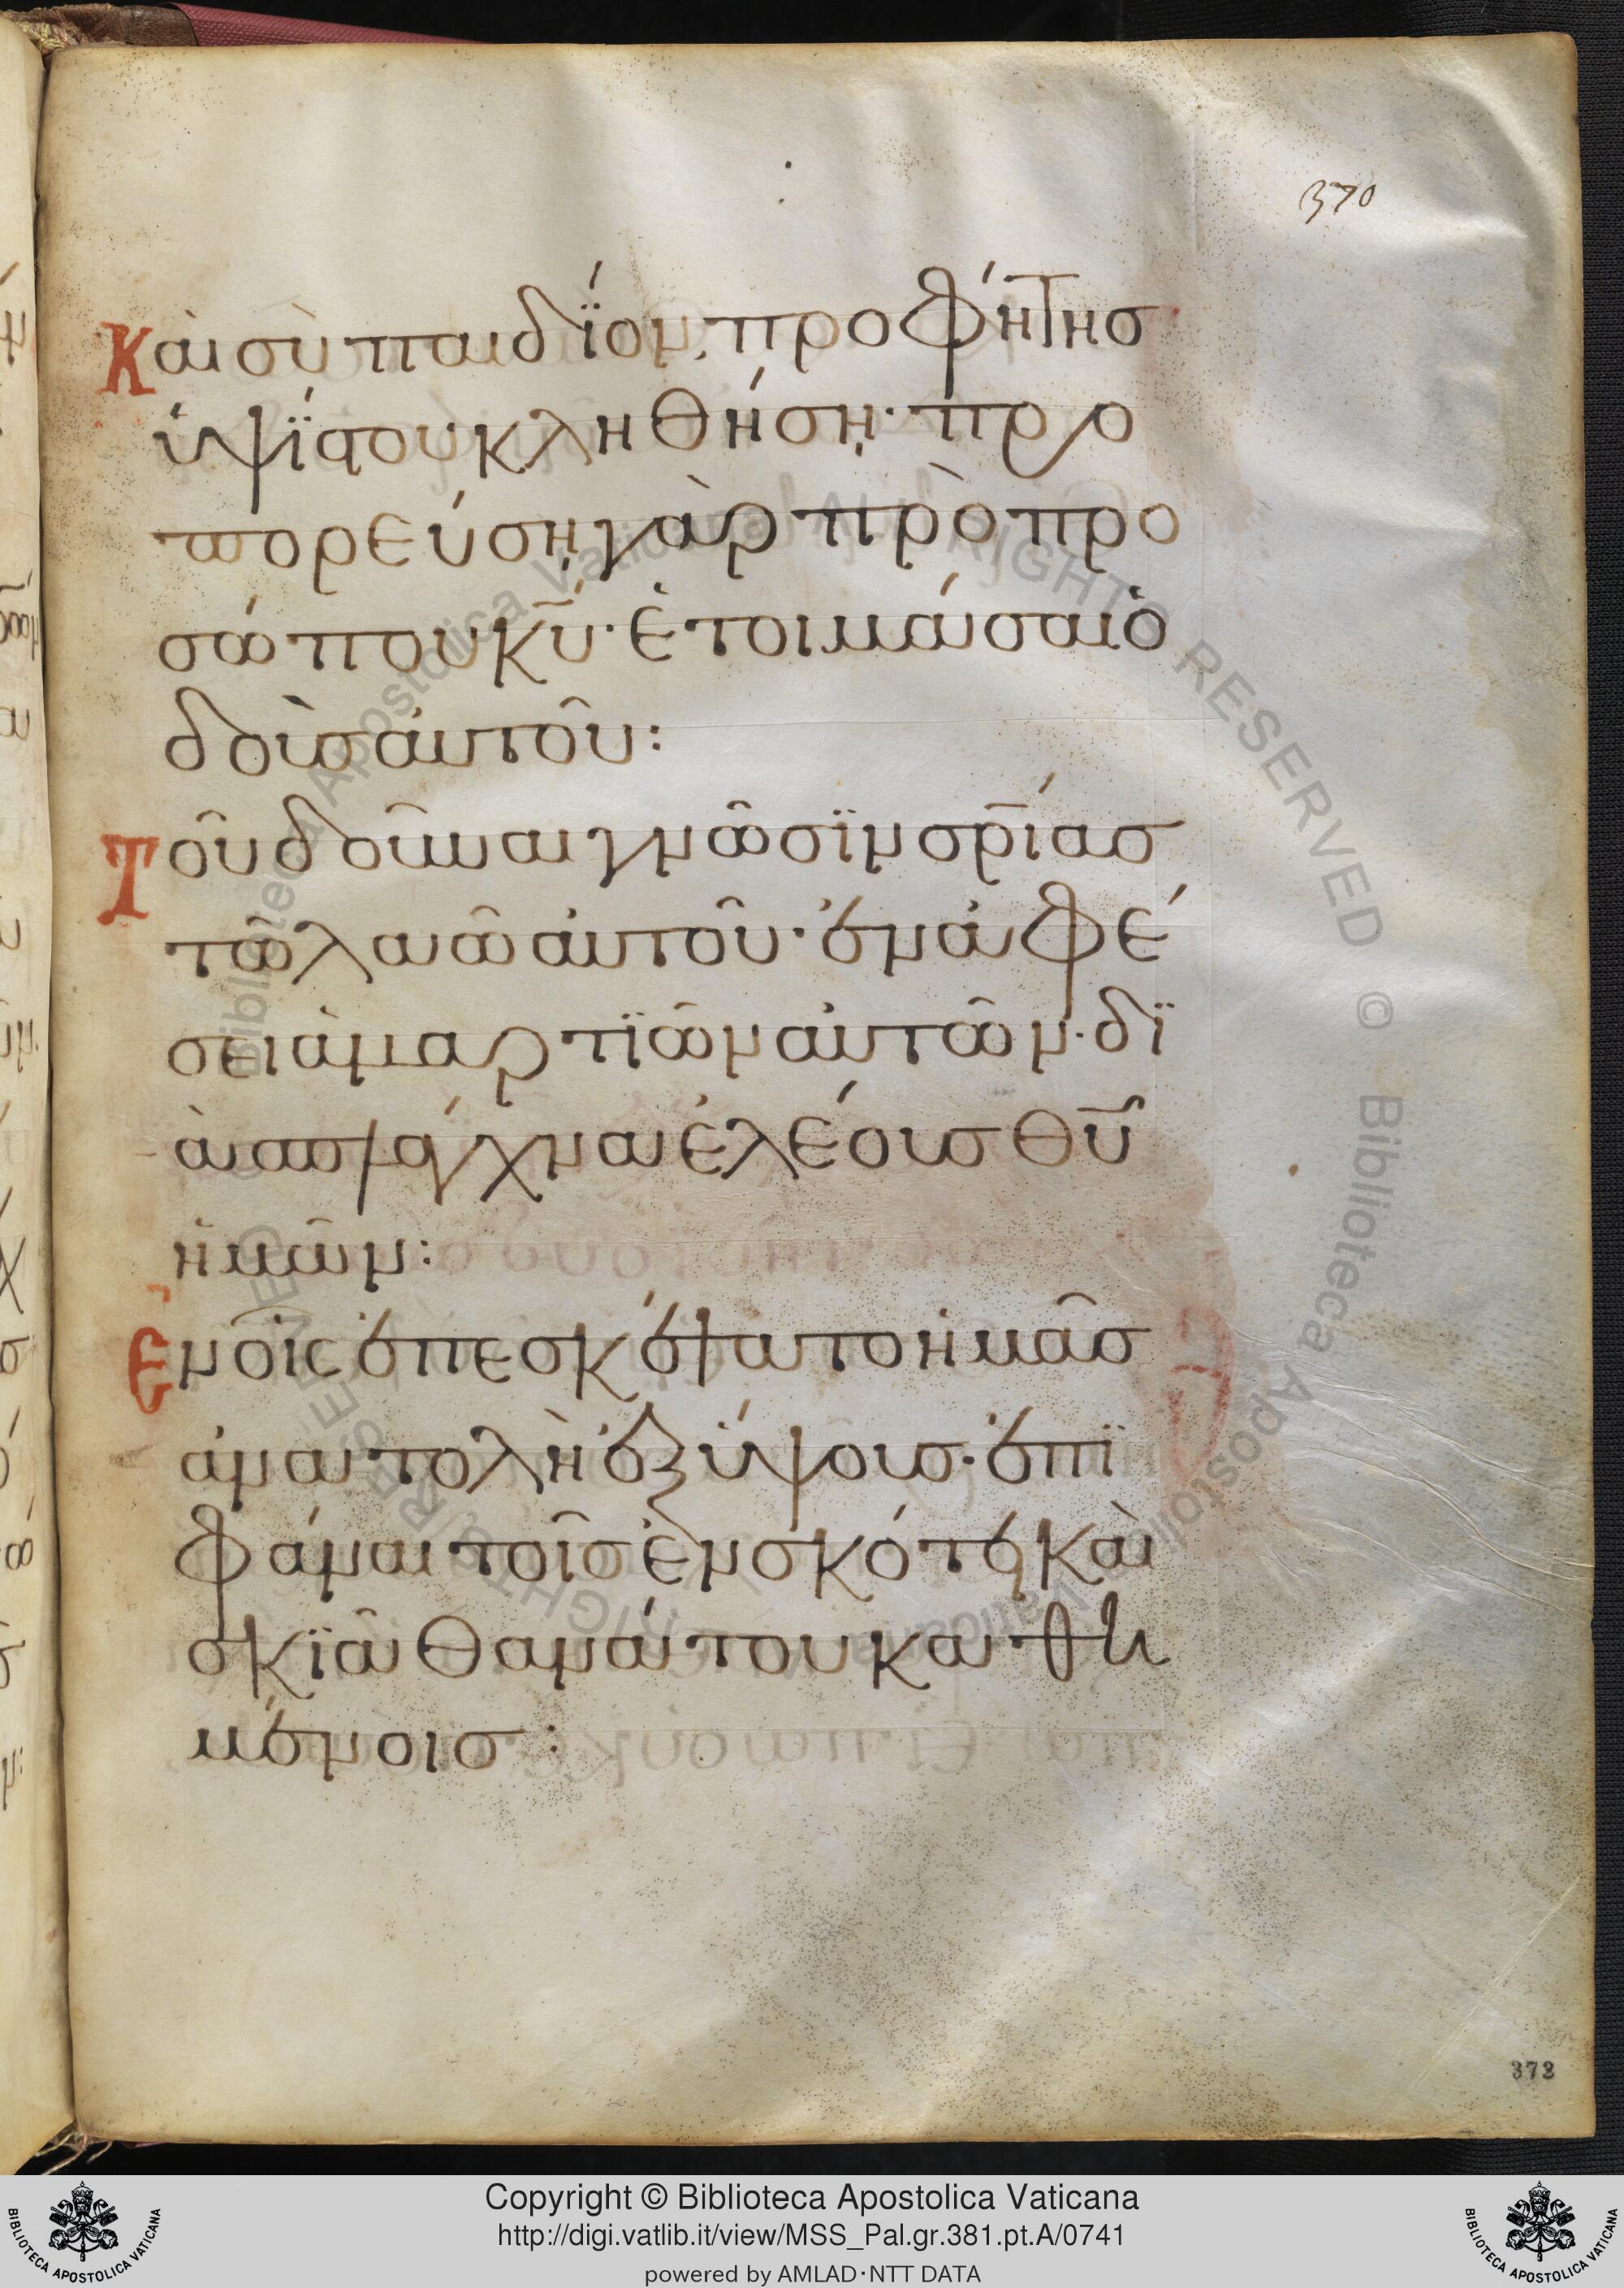 370
Καὶ σὺ παιδΐον, προφήτησ
ὑψΐστου κληθήσῃ· προ
πορεύσῃ γὰρ πρὸ προ
σώπου κ̅υ̅· ἑτοιμάσαι ὁ
δοὺσ αὐτοῦ:
Τοῦ δοῦναι γνῶσϊν σ̅ρ̅ίασ
τῶ λαῶ αὐτοῦ· ἐν ἀφέ
σει ἁμαρτϊῶν αὐτῶν· δϊ
ὰ σπλάγχνα ἐλέουσ θ̅υ̅
ἡμῶν:
Ἐν οἷς ἐπεσκέψατο ἡμᾶσ
ἀνατολὴ ἐξ ὕψουσ· ἐπϊ
φάναι τοῖσ ἐν σκότει καὶ
σκϊᾶ θανάτου καθη
μένοισ:
372
Copyright © Biblioteca Apostolica Vaticana
http://digi.vatlib.it/view/MSS_Pal.gr.381.pt.A/0741
powered by AMLAD·NTT DATA